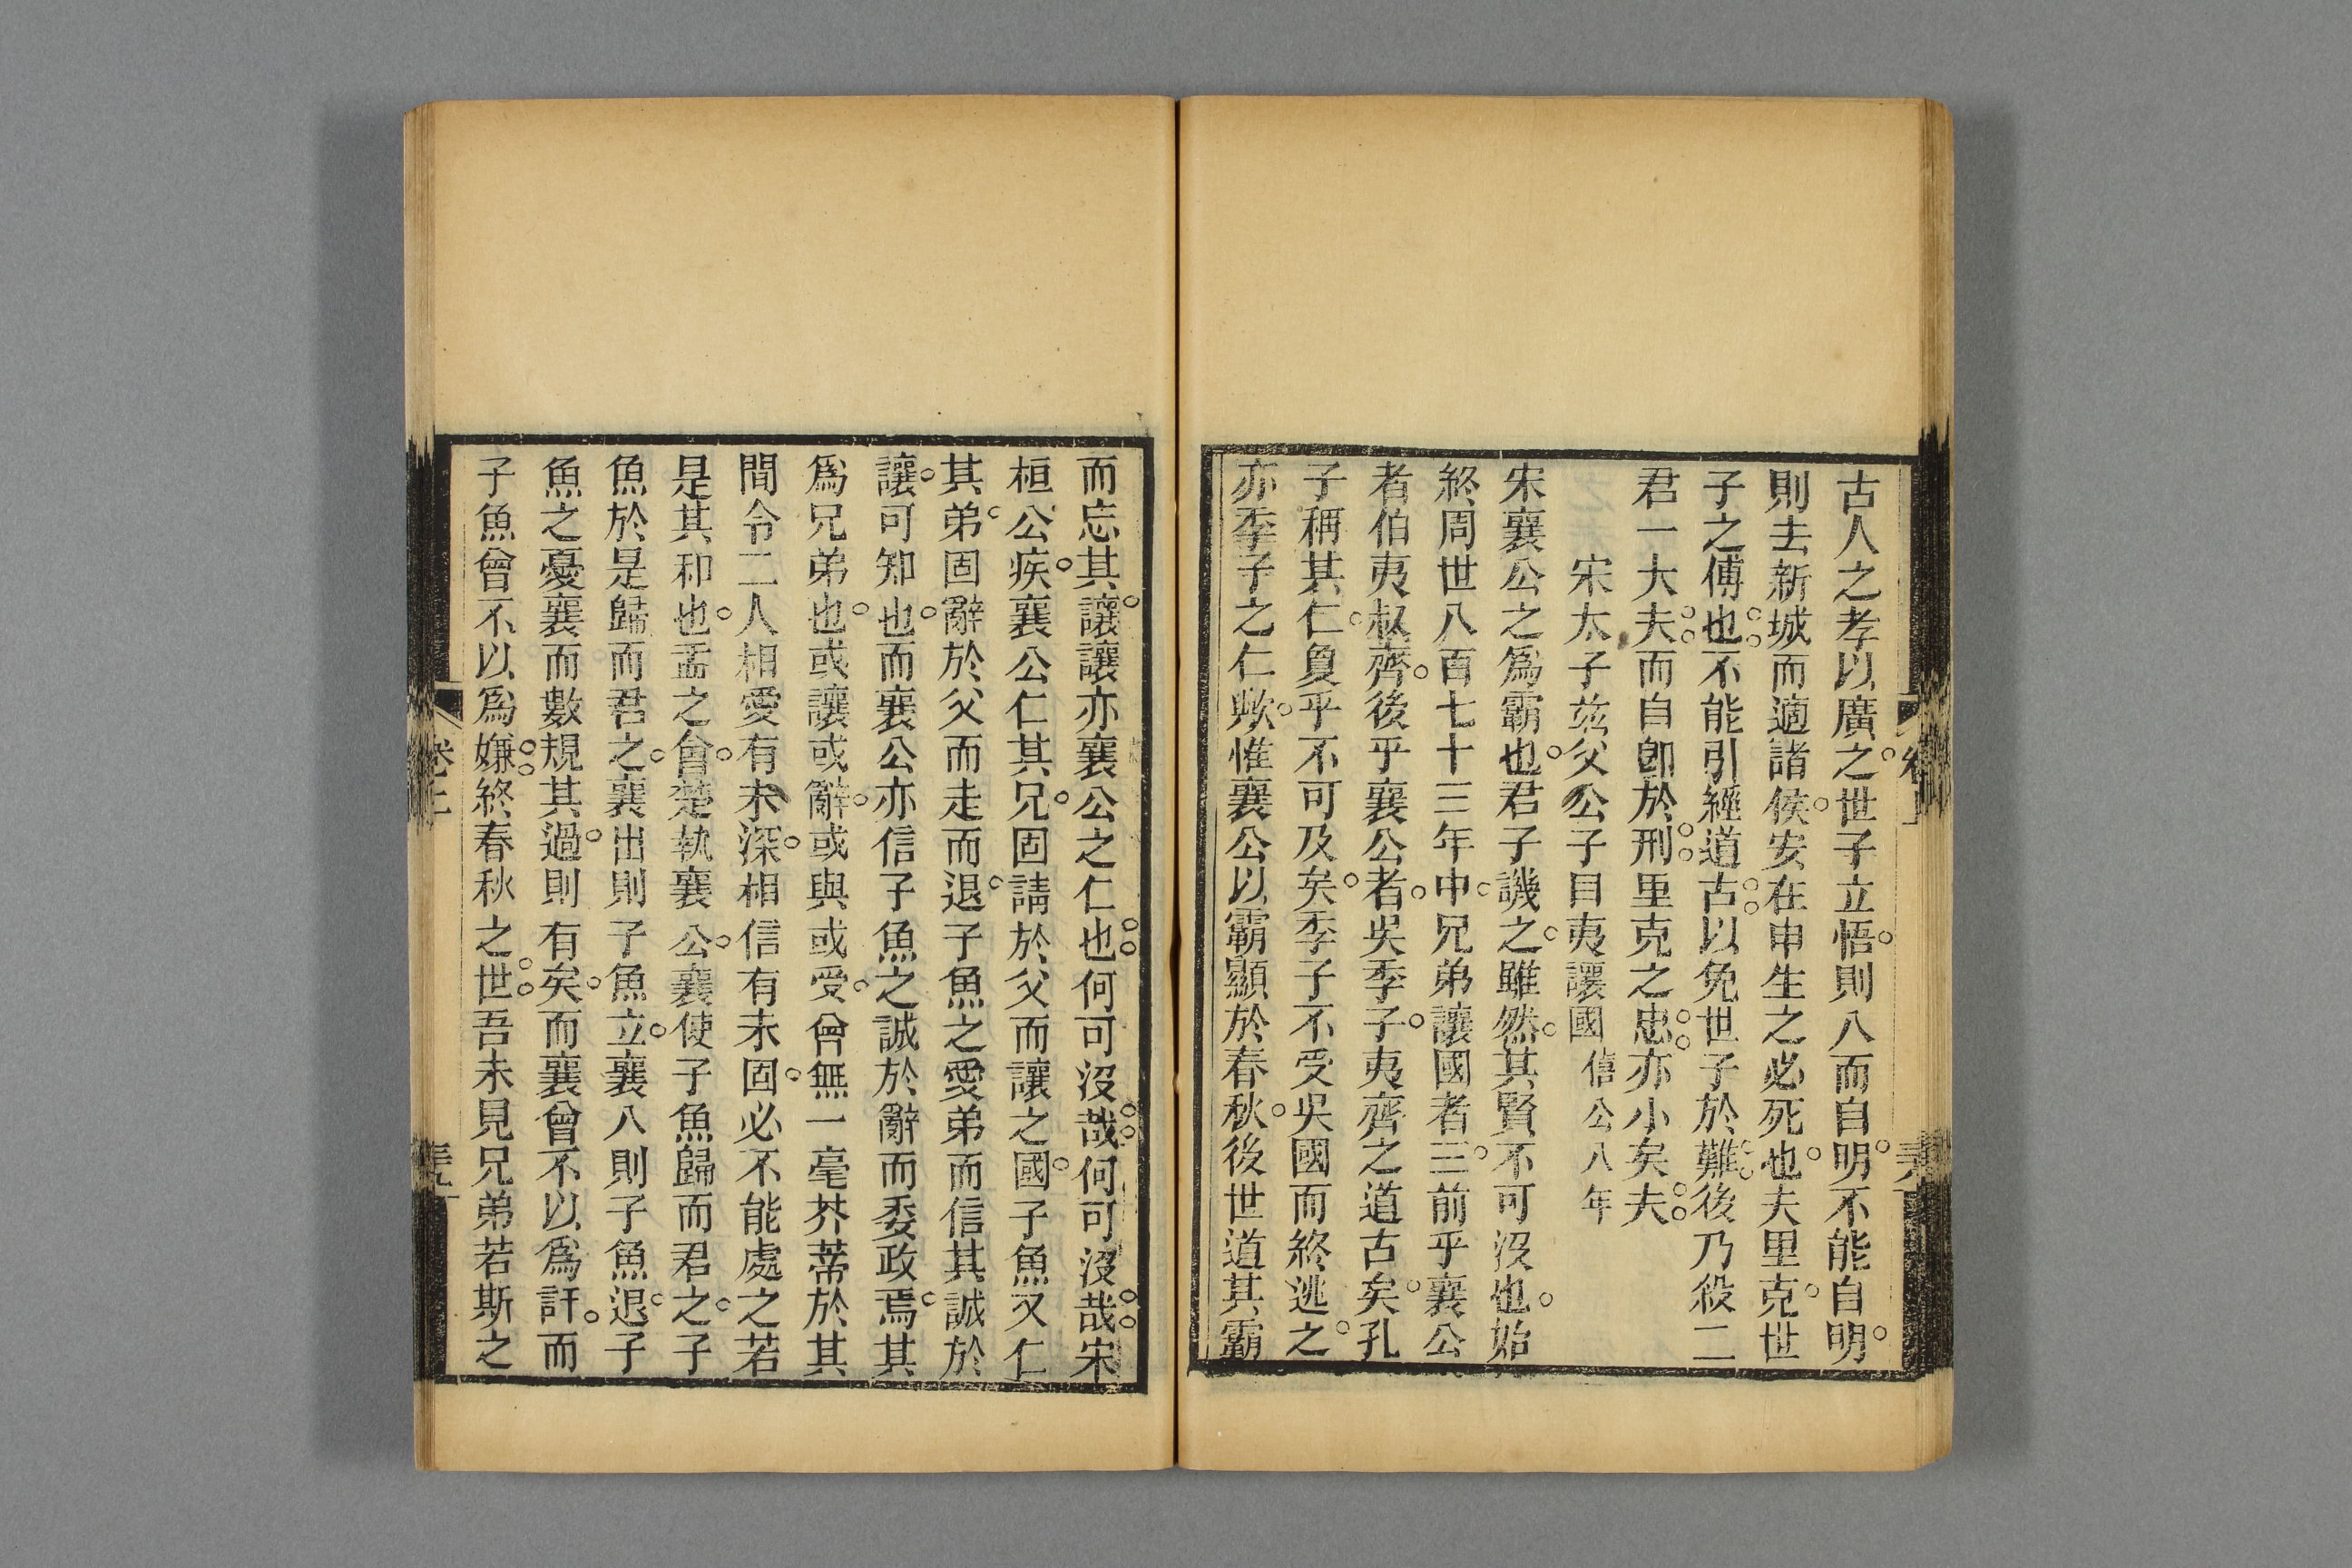 古人之孝以廣之世子立悟則入而自明不能自明
則去新城而適諸侯安在申生之必死也夫里克世
子之傅也不能引經道古以免世子於難後乃殺二
君一大夫而自卽於刑里克之忠亦小矣夫
宋太子玆父公子目夷讓國 僖公八年
宋襄公之爲霸也君子譏之雖然其賢不可沒也始
終周世八百七十三年中兄弟讓國者三前乎襄公
者伯夷叔齊後乎襄公者吳季子夷齊之道古矣孔
子稱其仁夐乎不可及矣季子不受吳國而終逃之
亦季子之仁歟惟襄公以霸顯於春秋後世道其霸
而忘其讓讓亦襄公之仁也何可沒哉何可沒哉宋
桓公疾襄公仁其兄固請於父而讓之國子魚又仁
其弟固辭於父而走而退子魚之愛弟而信其誠於
讓可知也而襄公亦信子魚之誠於辭而委政焉其
爲兄弟也或讓或辭或與或受曾無一毫芥蒂於其
間令二人相愛有未深相信有未固必不能處之若
是其和也盂之會楚執襄公襄使子魚歸而君之子
魚於是歸而君之襄出則子魚立襄入則子魚退子
魚之憂襄而數規其過則有矣而襄曾不以爲訐而
子魚曾不以爲嫌終春秋之世吾未見兄弟若斯之
卷上